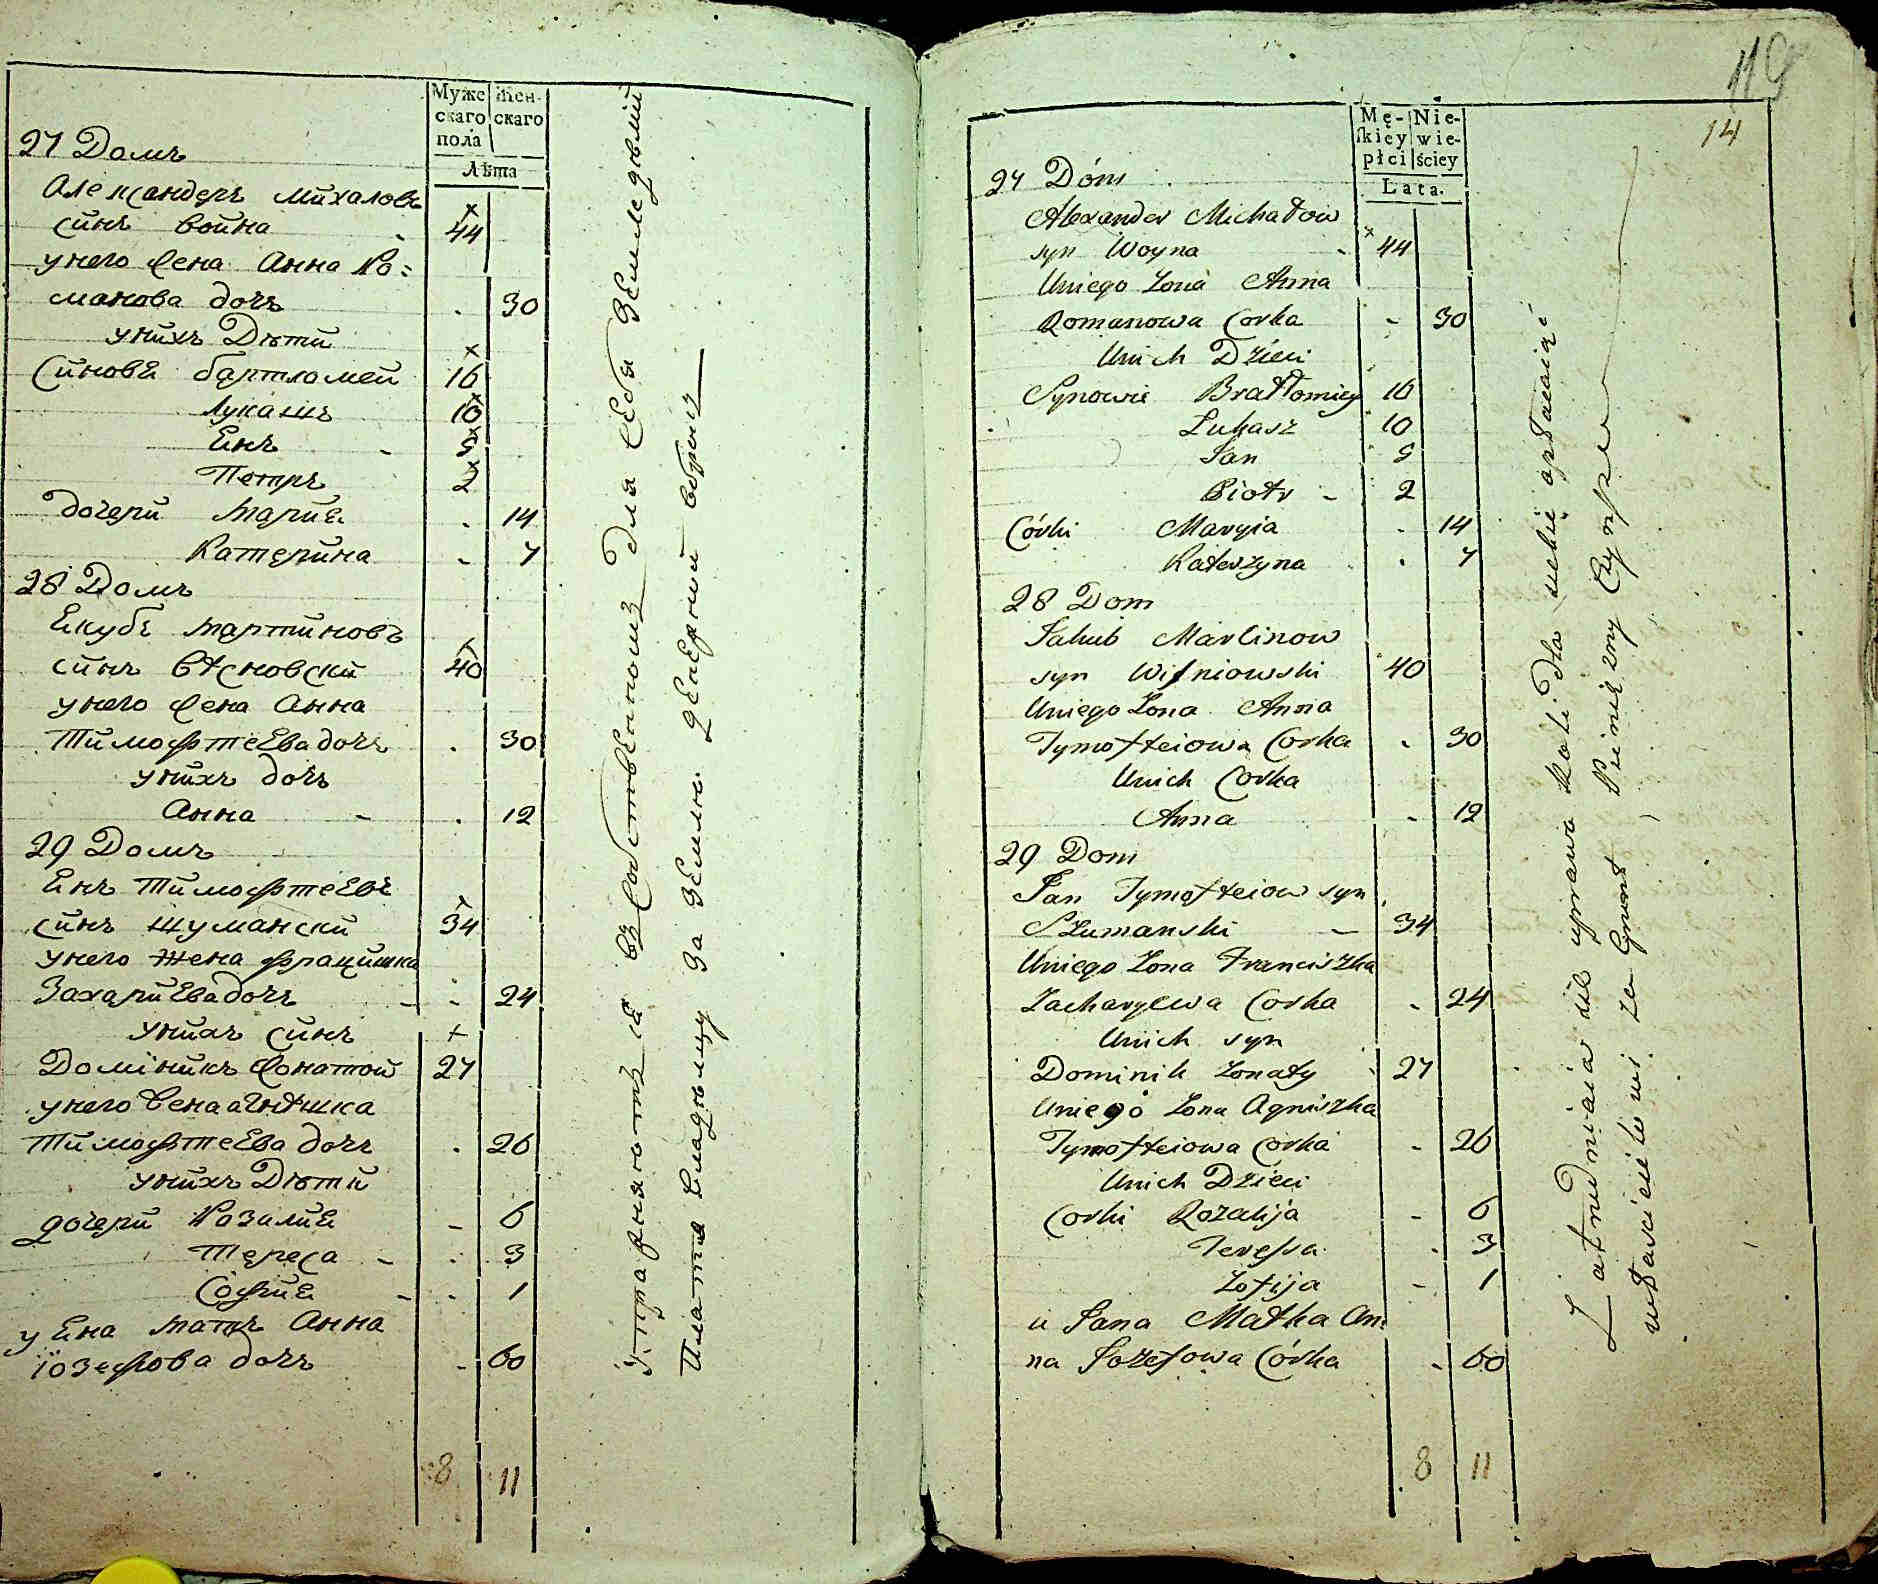 Муже
скаго
пола
Жен-
скаго
Лѣта
27 Домъ
Александеръ Михаловъ
синъ Война - 44
унего Жена Анна Ро=
манова дочъ . 30
унихъ Дѣти
Синове Бартломей 16
Лукашъ 10
Енъ - 5
Петръ 2
дочери Марие . 14
Катерина - 7
28 Домъ
Екубъ Мартиновъ
синъ Вѣсновски 40
унего Жена Анна
Тимофтеева дочъ . 30
унихъ дочъ
Анна - . 12
29 Домъ
Енъ Тимофтеевъ
синъ Шумански 34
унего Жена Францишка
Захариева дочъ - - 24
унихъ синъ
Доминикъ Жонатой 27
унего Жена Агнѣшка
Тимофтеева дочъ . 26
унихъ Дѣти
дочери Розалие - 6
Тереса - . 3
Софие - - 1
у Ена матъ Анна
Юзефова дочъ - 60
8 11
для себя Земледѣлий
Платя за Землю
119
14
Mę-
skiey
płci
Nie-
wie-
ściey
Lata.
27 Dóm
Alexander Michałow
syn Woyna - 44
Uniego Żona Anna
Romanowa Corka - 30
Unich Dzieci
Synowie Bratłomiey 16
Łukasz 10
Jan 5
Piotr - 2
Córki Maryia - 14
Katerzyna . 7
28 Dom
Jakub Marcinow
syn Wisniowski 40
Uniego Żona Anna
Tymofteiowa Corka . 30
Unich Corka
Anna - 12
29 Dom
Jan Tymofteiow syn
Szumanski - 34
Uniego Żona Franciszka
Zacharyewa Corka . 24
Unich syn
Dominik Żonaty 27
Uniego Żona Agniszka
Tymofteiowa Corka - 26
Unich Dzieci
Corki Rozalija - 6
Teressa . 3
Zofija - 1
u Jana Matka An=
na Jozefowa Córka . 60
8 11
Zatrudniaia sie uprawa Roli dla siebie opłacaiąc
włascicielowi za Grunt Pieniezny Czynsz